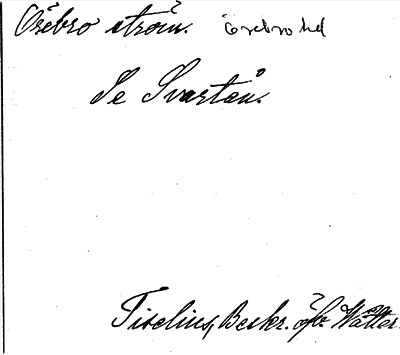 Örebro ström. Örebro hd
Se Svartån.
Tiselius, Beskr. öfv. Wätter